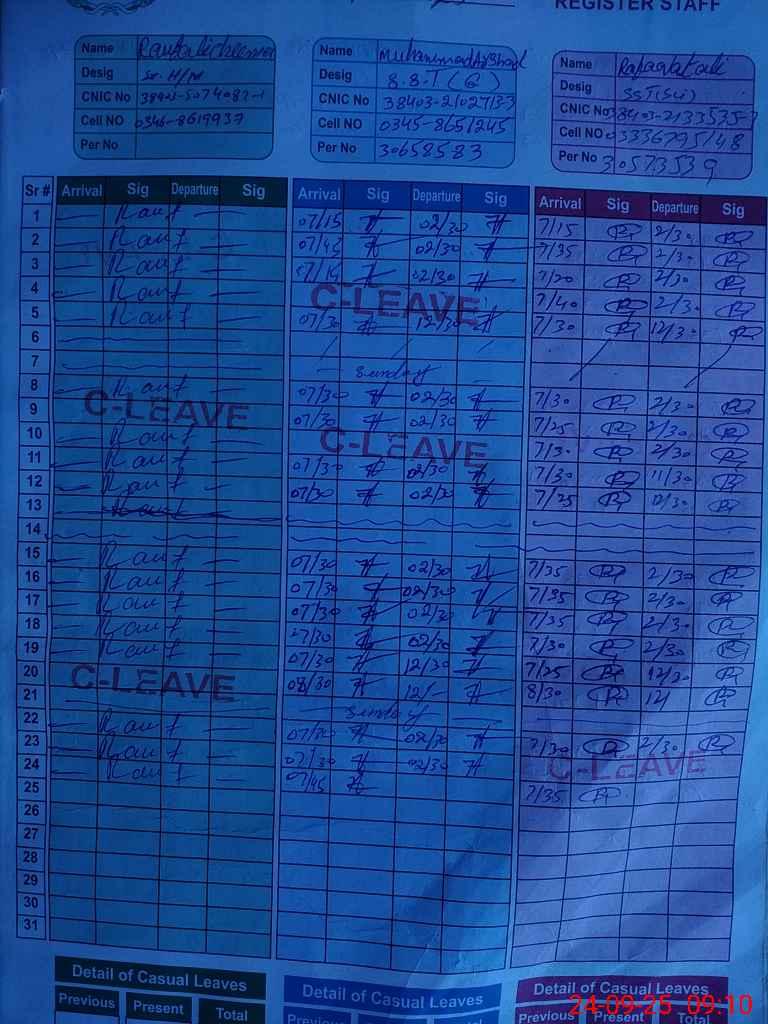 REGISTER STAFF
Name
Desig Sr. H/M
CNIC No
Cell NO 0346-8619937
Per No
Name Muhammad Arshad
Desig S.S.T (G)
CNIC No
Cell NO 0345-8651245
Per No 30658583
Name
Desig SST (Sci)
CNIC No
Cell NO
Per No 30573539
Sr # Arrival Sig Departure Sig Arrival Sig Departure Sig Arrival Sig Departure Sig
1 Rauf 07/15 02/30 7/15 2/30
2 Rauf 07/45 02/30 7/35 2/30
3 Rauf 02/30 7/20 2/30
4 Rauf C-LEAVE 7/40 2/30
5 Rauf 07/30 12/30 7/30 12/30
6
7 Sunday
8 Rauf 07/30 02/30 7/30 2/30
9 C-LEAVE 07/30 02/30 7/25 2/30
10 Rauf C-LEAVE 7/30 2/30
11 Rauf 07/30 02/30 7/30 11/30
12 Rauf 07/30 02/30 7/25 12/30
13
14
15 Rauf 07/30 02/30 7/35 2/30
16 Rauf 07/30 02/30 7/35 2/30
17 Rauf 07/30 02/30 7/35 2/30
18 Rauf 07/30 02/30 7/30 2/30
19 Rauf 07/30 12/30 7/25 12/30
20 C-LEAVE 08/30 12/- 8/30 12/
21 Sunday
22 Rauf 07/30 02/30 7/30 2/30
23 Rauf 07/30 02/30 C-LEAVE
24 Rauf 07/45 7/35
25
26
27
28
29
30
31
Detail of Casual Leaves Detail of Casual Leaves Detail of Casual Leaves
Previous Present Total Previous Present Total Previous Present Total
24-09-25 09:10